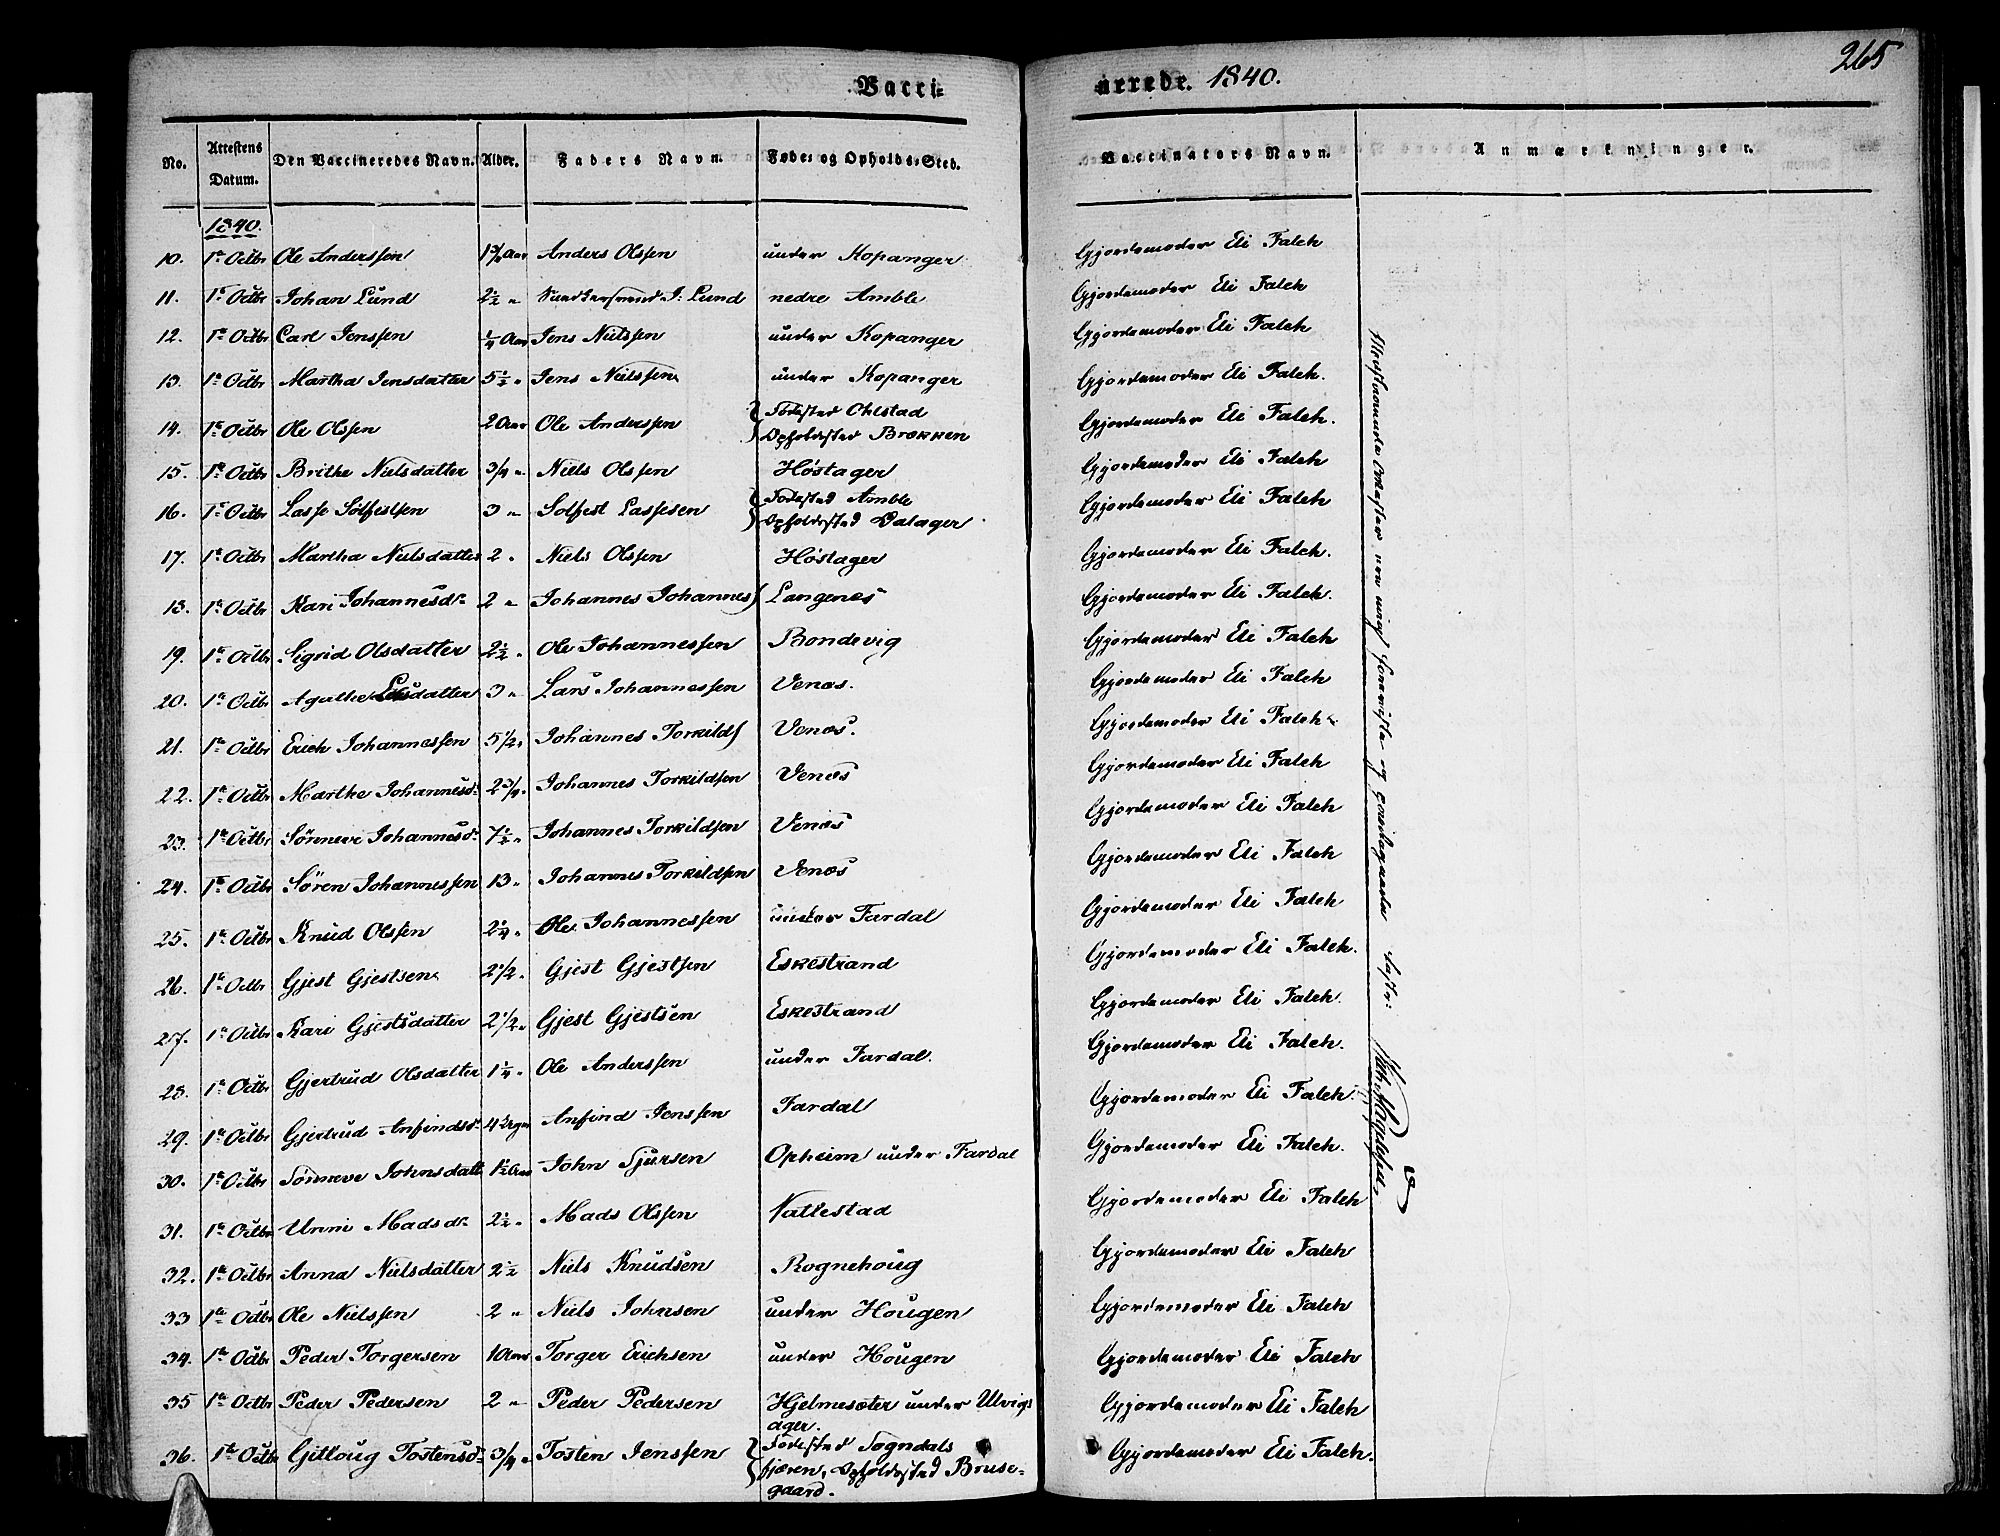 265
Vacci- nerede. 1840.
No. Attestens Datum. Den Vaccineredes Navn. Alder. Faders Navn. Føde- og Opholds-Sted. Vaccinators Navn. Anmærkninger.
1840.
10. 1ste Octbr Ole Anderssen Anders Olssen under Kopanger Gjordemoder Eli Falch
11. 1ste Octbr Johan Lund 2 1/2 " J: Lund nedre Amble Gjordemoder Eli Falch
12. 1ste Octbr Carl Jenssen 1/4 Aar Jens Nielssen under Kopanger Gjordemoder Eli Falch
13. 1ste Octbr Martha Jensdatter 5 1/2 " Jens Nielssen under Kopanger Gjordemoder Eli Falch.
14. 1ste Octbr Ole Olssen 2 Aar Ole Anderssen Fødested Ohlstad
Opholdssted Brækken Gjordemoder Eli Falch.
15. 1ste Octbr Brithe Nielsdatter 3/4 " Niels Olssen Høstager Gjordemoder Eli Falch
16. 1ste Octbr Lasse Solfestsen 3 " Solfest Lassesen Fødested Amble
Opholdssted Dalager Gjordemoder Eli Falch
17. 1ste Octbr Martha Nielsdatter 2 " Niels Olssen Høstager Gjordemoder Eli Falch.
18. 1ste Octbr Kari Johannesdr 2 " Johannes Johanness Langenes Gjordemoder Eli Falch.
19. 1ste Octbr Sigrid Olsdatter 2 1/2 " Ole Johannessen Bondevig Gjordemoder Eli Falch
20. 1ste Octbr Agathe Larsdatter 3 " Lars Johannessen Venæs. Gjordemoder Eli Falch
21. 1ste Octbr Erich Johannessen 5 1/2 " Johannes Torkilds Venæs. Gjordemoder Eli Falch
22. 1ste Octbr Marthe Johannesdr 2 3/4 " Johannes Torkildsen Venæs Gjordemoder Eli Falch
23. 1ste Octbr Sönneve Johannesdr 7 1/2 " Johannes Torkildsen Venæs Gjordemoder Eli Falch
24. 1ste Octbr Sören Johannessen 13 " Johannes Torkildsen Venæs Gjordemoder Eli Falch
25. 1ste Octbr Knud Olssen 2 1/4 " Ole Johannessen under Fardal Gjordemoder Eli Falch
26. 1ste Octbr Gjest Gjestsen 2 1/2 " Gjest Gjestsen Eskestrand Gjordemoder Eli Falch.
27. 1ste Octbr Kari Gjestsdatter 2 1/2 " Gjest Gjestsen Eskestrand Gjordemoder Eli Falch.
28. 1ste Octbr Gjertrud Olsdatter 1 1/4 " Ole Anderssen under Fardal. Gjordemoder Eli Falch.
29. 1ste Octbr Gjertrud Anfindsdr Anfind Jenssen Fardal Gjordemoder Eli Falch.
30. 1ste Octbr Sönneve Johnsdatt 1 1/2 Aar John Sjursen Opheim under Fardal Gjordemoder Eli Falch.
31. 1ste Octbr Unni Madsdr 2 1/2 " Mads Olssen Nattestad Gjordemoder Eli Falch
32. 1ste Octbr Anna Nielsdatter 2 1/2 Niels Knudsen Rognehoug Gjordemoder Eli Falch
33 1ste Octbr Ole Nielssen 2 " Niels Johnsen under Hougen Gjordemoder Eli Falch
34. 1ste Octbr Peder Torgersen 10 Aar Torger Erichsen under Hougen Gjordemoder Eli Falch
35 1ste Octbr Peder Pedersen 2 " Peder Pedersen Hjelmesæter under Ulvigs
ager. Gjordemoder Eli Falch
36. 1ste Octbr Gitloug Tostensdr 3/4 " Tosten Jenssen Fødested Sogndals
fjæren, Opholdssted Bruse-
gaard. Gjordemoder Eli Falch.